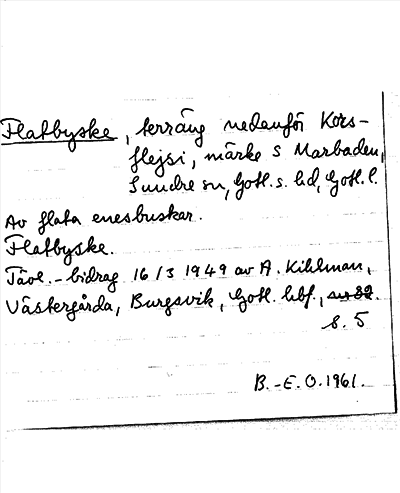 Flatbyske, terräng nedanför Kors-
flejsi, märke S Marbaden,
Sundre sn, Gotl. s. hd, Gotl. l.
Av flata enesbuskar.
Flatbyske.
Tävl.-bidrag 16/3 1949 av A. Kihlman,
Västergårda, Burgsvik, Gotl. hbf.,
s. 5
B.-E. O. 1961.